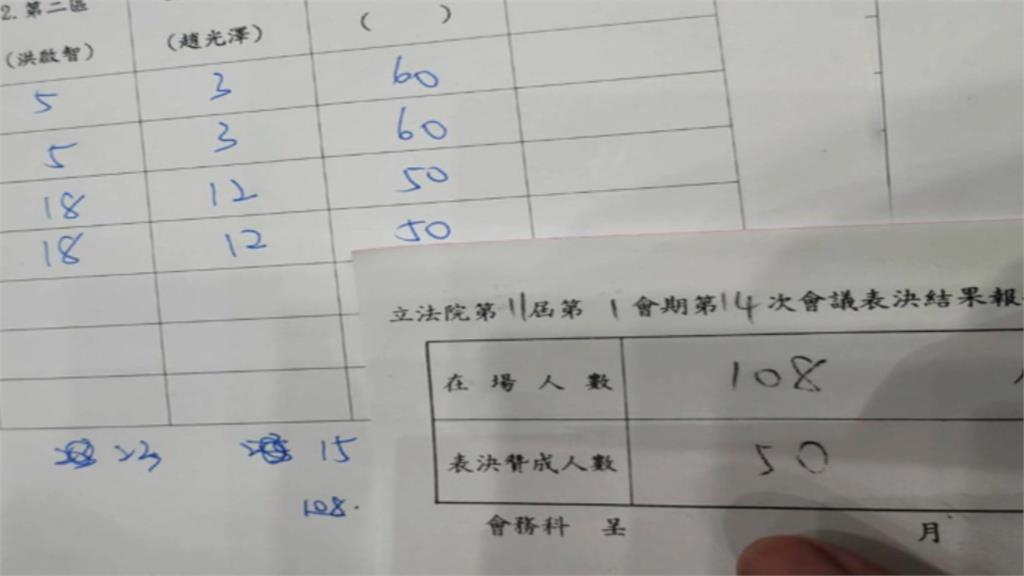 2.第二區
(洪啟智) (趙光澤) ( )
5 3 60
5 3 60
18 12 50
18 12 50
23 15
108.
立法院第11屆第1會期第14次會議表決結果報
在場人數 108
表決贊成人數 50
會務科 呈 月